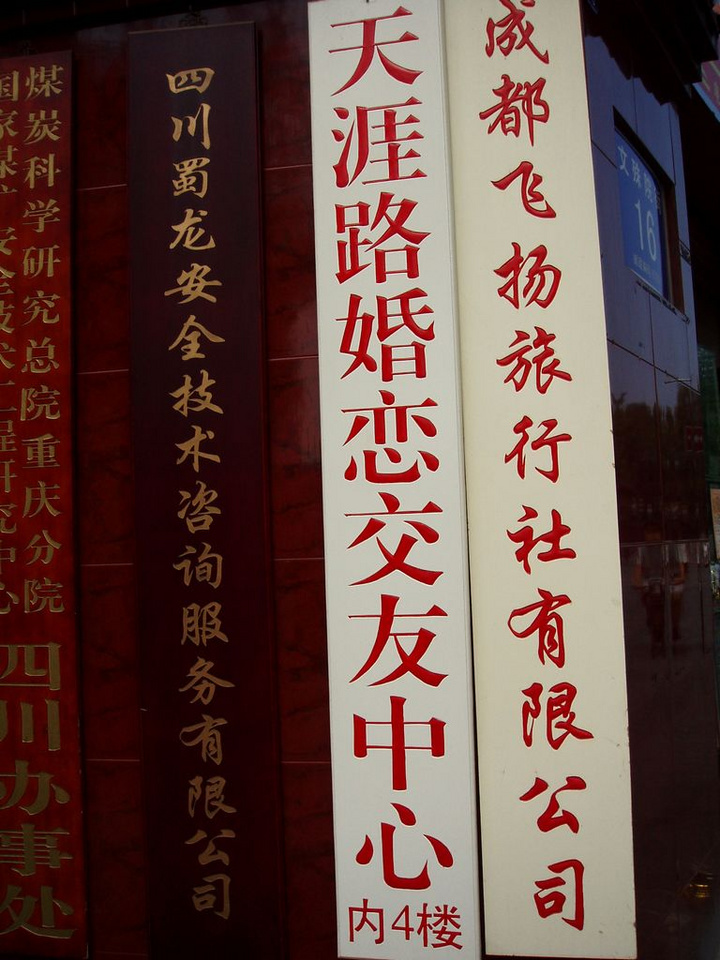 煤炭科学研究总院重庆分院
国家煤矿安全技术工程研究中心
四川办事处
四川蜀龙安全技术咨询服务有限公司
天涯路婚恋交友中心
内4楼
成都飞扬旅行社有限公司
16